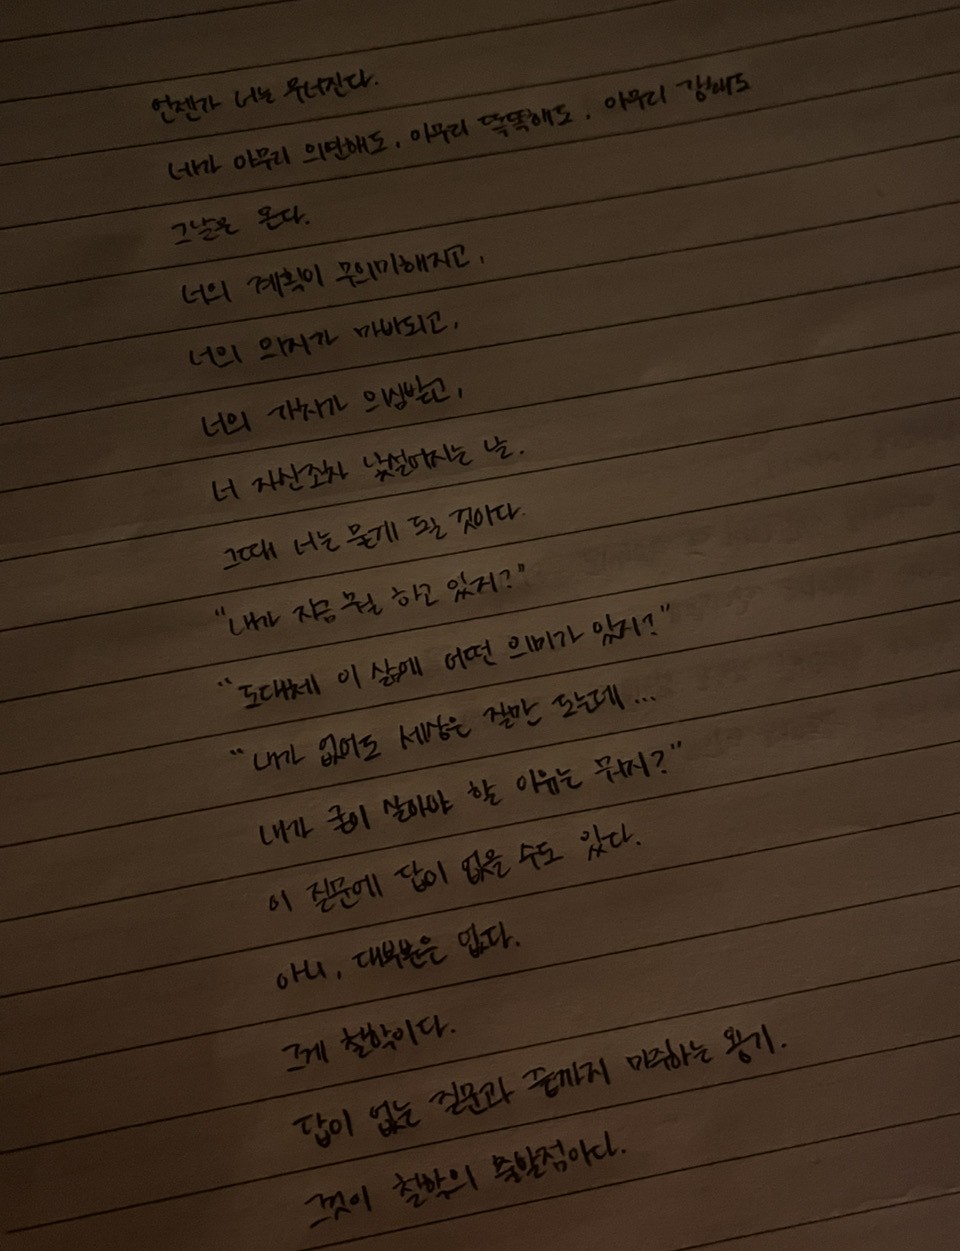 언젠가 너는 무너진다.
네가 아무리 외면해도, 아무리 똑똑해도, 아무리 강해도
그날은 온다.
너의 계획이 무의미해지고,
너의 의지가 마비되고,
너의 가치가 의심받고,
너 자신조차 낯설어지는 날.
그때 너는 묻게 될 것이다.
"내가 지금 뭘 하고 있지?"
"도대체 이 삶에 어떤 의미가 있지?"
"내가 없어도 세상은 잘만 도는데...
내가 굳이 살아야 할 이유는 뭐지?"
이 질문에 답이 없을 수도 있다.
아니, 대부분은 없다.
그게 철학이다.
답이 없는 질문과 끝까지 마주하는 용기.
그것이 철학의 출발점이다.